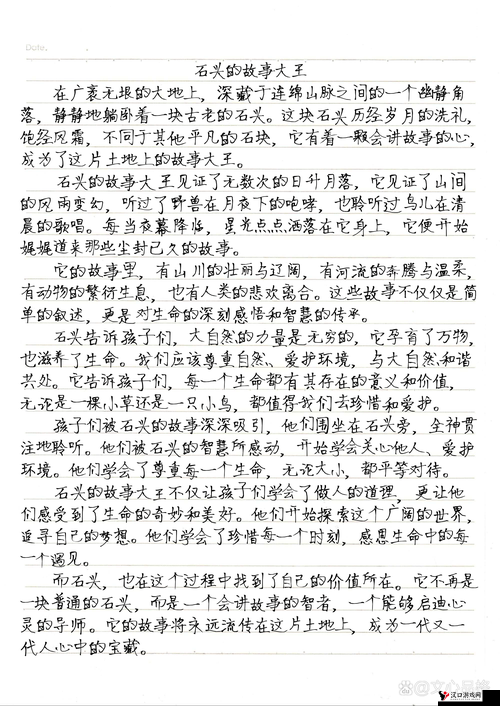 Date.
石兴的故事大王
在广袤无垠的大地上，深藏于连绵山脉之间的一个幽静角
落，静静地躺卧着一块古老的石兴。这块石兴历经岁月的洗礼，
饱经风霜，不同于其他平凡的石块，它有着一颗会讲故事的心，
成为了这片土地上的故事大王。
石兴的故事大王见证了无数次的日升月落，它见证了山间
的风雨变幻，听过了野兽在月夜下的咆哮，也聆听过鸟儿在清
晨的歌唱。每当夜幕降临，星光点点洒落在它身上，它便开始
娓娓道来那些尘封已久的故事。
它的故事里，有山川的壮丽与辽阔，有河流的奔腾与温柔，
有动物的繁衍生息，也有人类的悲欢离合。这些故事不仅仅是简
单的叙述，更是对生命的深刻感悟和智慧的传承。
石兴告诉孩子们，大自然的力量是无穷的，它孕育了万物，
也滋养了生命。我们应该尊重自然、爱护环境，与大自然和谐
共处。它告诉孩子们，每一个生命都有其存在的意义和价值，
无论是一棵小草还是一只小鸟，都值得我们去珍惜和爱护。
孩子们被石兴的故事深深吸引，他们围坐在石兴旁，全神贯
注地聆听。他们被石兴的智慧所感动，开始学会关心他人、爱护
环境。他们学会了尊重每一个生命，无论大小，都平等对待。
石兴的故事大王不仅让孩子们学会了做人的道理，更让他
们感受到了生命的奇妙和美好。他们开始探索这个广阔的世界，
追寻自己的梦想。他们学会了珍惜每一个时刻，感恩生命中的每
一个遇见。
而石兴，也在这个过程中找到了自己的价值所在。它不再是
一块普通的石兴，而是一个会讲故事的智者，一个能够启迪心
灵的导师。它的故事将永远流传在这片土地上，成为一代又一
代人心中的宝藏。
汉口游戏网